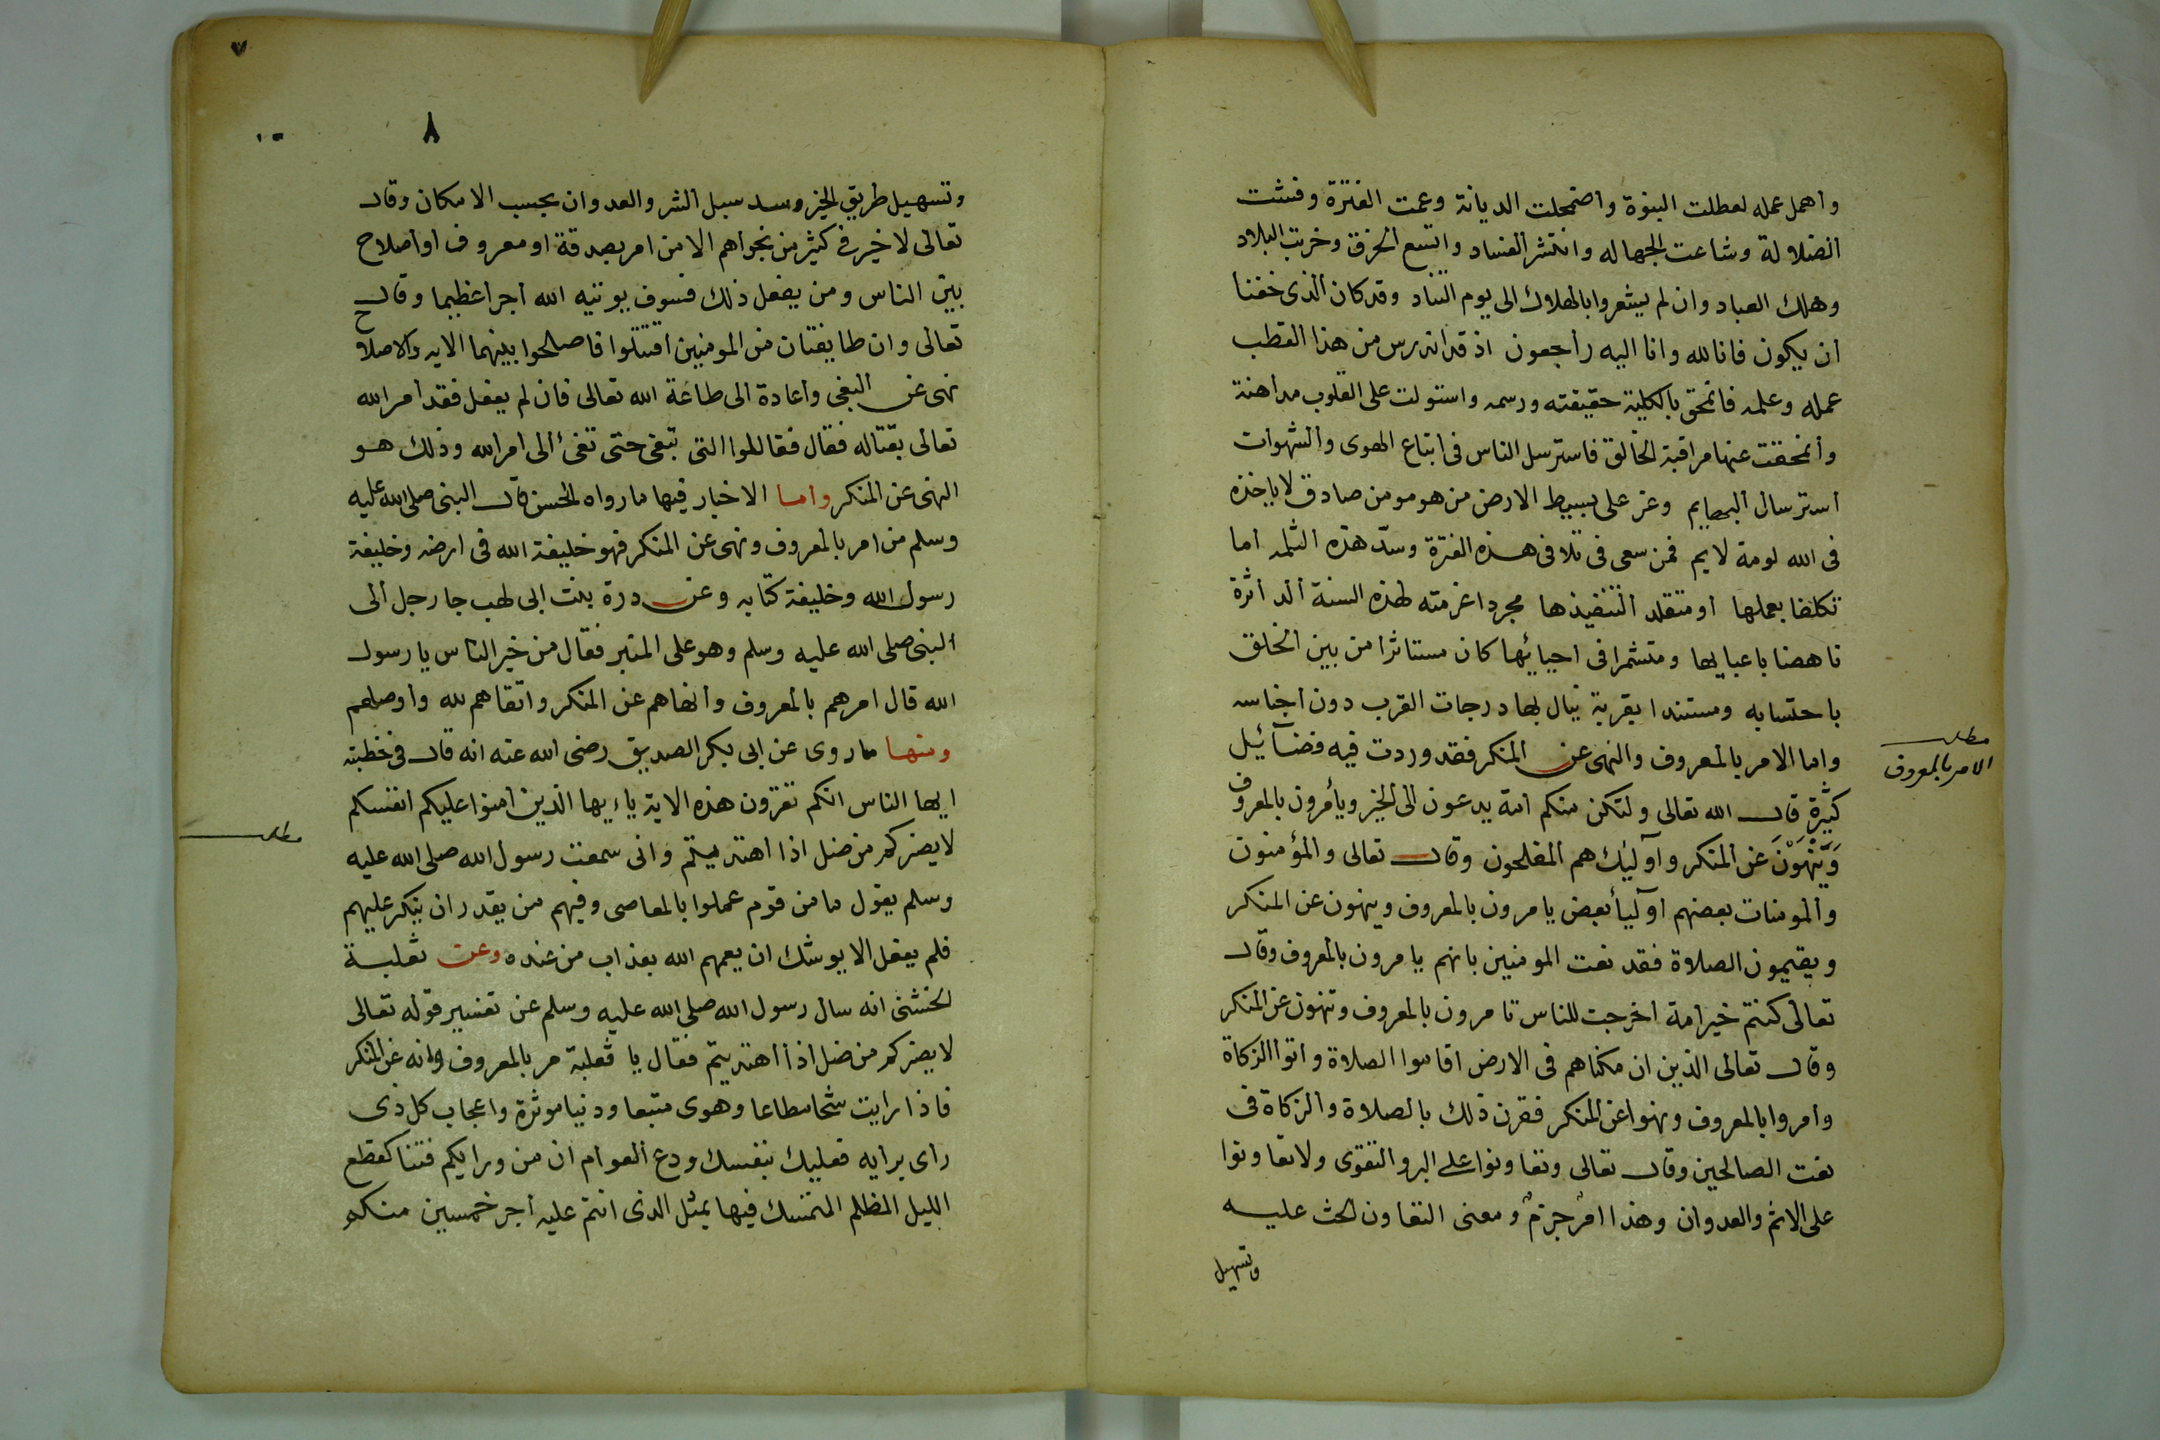 واهمل عمله لعطلت النبوة واضمحلت الديانة وعمت الفترة وفشت
الضلالة وشاعت الجهاله وانتشر الفساد واتسع الخرق وخربت البلاد
وهلك العباد وان لم يشعروا بالهلاك الى يوم التناد وقد كان الذى خفنا
ان يكون فانا لله وانا اليه راجعون اذ قد اندرس من هذا القطب
عمله وعلمه فانمحق بالكلية حقيقته ورسمه واستولت على القلوب مداهنة
وانمحقت عنها مراقبة الخالق فاسترسل الناس فى اتباع الهوى والشهوات
استرسال البهايم وعز على بسيط الارض من هو مومن صادق لا ياخذه
فى الله لومة لايم فمن سعى فى تلافى هذه الفترة وسدّ هذه الثلمه اما
تكلفا بعملها او متقلد التنفيذها مجردا عزمته لهذه السنة الد اثرة
ناهضا باعبايها ومتشمرا فى احيائها كان مستاثرا من بين الخلق
باحتسابه ومستندا بقربة ينال بها درجات القرب دون اجناسه
واما الامر بالمعروف والنهى عن المنكر فقد وردت فيه فضآئيل
مطلب
الامر بالمعروف
كثيرة قال الله تعالى ولتكن منكم امة يدعون الى الخير ويأمرون بالمعروف
وَيَنْهَوْنَ عن المنكر واولئك هم المفلحون وقال تعالى والمؤمنون
والمومنات بعضهم اوليآ بعض يامرون بالمعروف وينهون عن المنكر
ويقيمون الصلاة فقد نعت المومنين بانهم يامرون بالمعروف وقال
تعالى كنتم خير امة اخرجت للناس تامرون بالمعروف وتنهون عن المنكر
وقال تعالى الذين ان مكناهم فى الارض اقاموا الصلاة واتوا الزكاة
وامروا بالمعروف ونهوا عن المنكر فقرن ذلك بالصلاة والزكاة فى
نعت الصالحين وقال تعالى وتعاونوا على البر والتقوى ولا تعاونوا
على الاثم والعدوان وهذا امر جزم ومعنى التعاون الحث عليه
وتسهيل
٧
٨
وتسهيل طريق الخير وسد سبل الشر والعدوان بحسب الامكان وقال
تعالى لا خير فى كثير من نجواهم الا من امر بصدقة او معروف او اصلاح
بين الناس ومن يفعل ذلك فسوف يوتيه الله اجرا عظيما وقال
تعالى وان طايفتان من المومنين اقتتلوا فاصلحوا بينهما الايه والاصلاح
نهى عن البغى واعادة الى طاعة الله تعالى فان لم يفعل فقد امر الله
تعالى بقتاله فقال فقاتلوا التى تبغى حتى تفئ الى امر الله وذلك هو
النهى عن المنكر واما الاخبار فيها مارواه الحسن قال النبى صلى الله عليه
وسلم من امر بالمعروف ونهى عن المنكر فهو خليفة الله فى ارضه وخليفة
رسول الله وخليفة كتابه وعن درة بنت ابى لهب جا رجل الى
النبى صلى الله عليه وسلم وهو على المنبر فقال من خير الناس يا رسول
الله قال امرهم بالمعروف وانهاهم عن المنكر واتقاهم لله واوصلهم
ومنها ماروى عن ابى بكر الصديق رضى الله عنه انه قال فى خطبته
ايها الناس انكم تقرون هذه الاية ياءيها الذين امنوا عليكم انفسكم
مطلب
لا يضركم من ضل اذا اهتديتم وانى سمعت رسول الله صلى الله عليه
وسلم يقول ما من قوم عملوا بالمعاصى وفيهم من يقدر ان ينكر عليهم
فلم يفعل الا يوشك ان يعمهم الله بعذاب من عنده وعن ثعلبة
الخشنى انه سال رسول الله صلى الله عليه وسلم عن تفسير قوله تعالى
لا يضركم من ضل اذا اهتديتم فقال يا ثعلبة مر بالمعروف وانه عن المنكر
فاذا رايت شحا مطاعا وهوى متبعا ودنيا موثرة واعجاب كل ذى
راى برايه فعليك بنفسك ودع العوام ان من ورايكم فتنا كقطع
الليل المظلم المتمسك فيها بمثل الذى انتم عليه اجر خمسين منكم